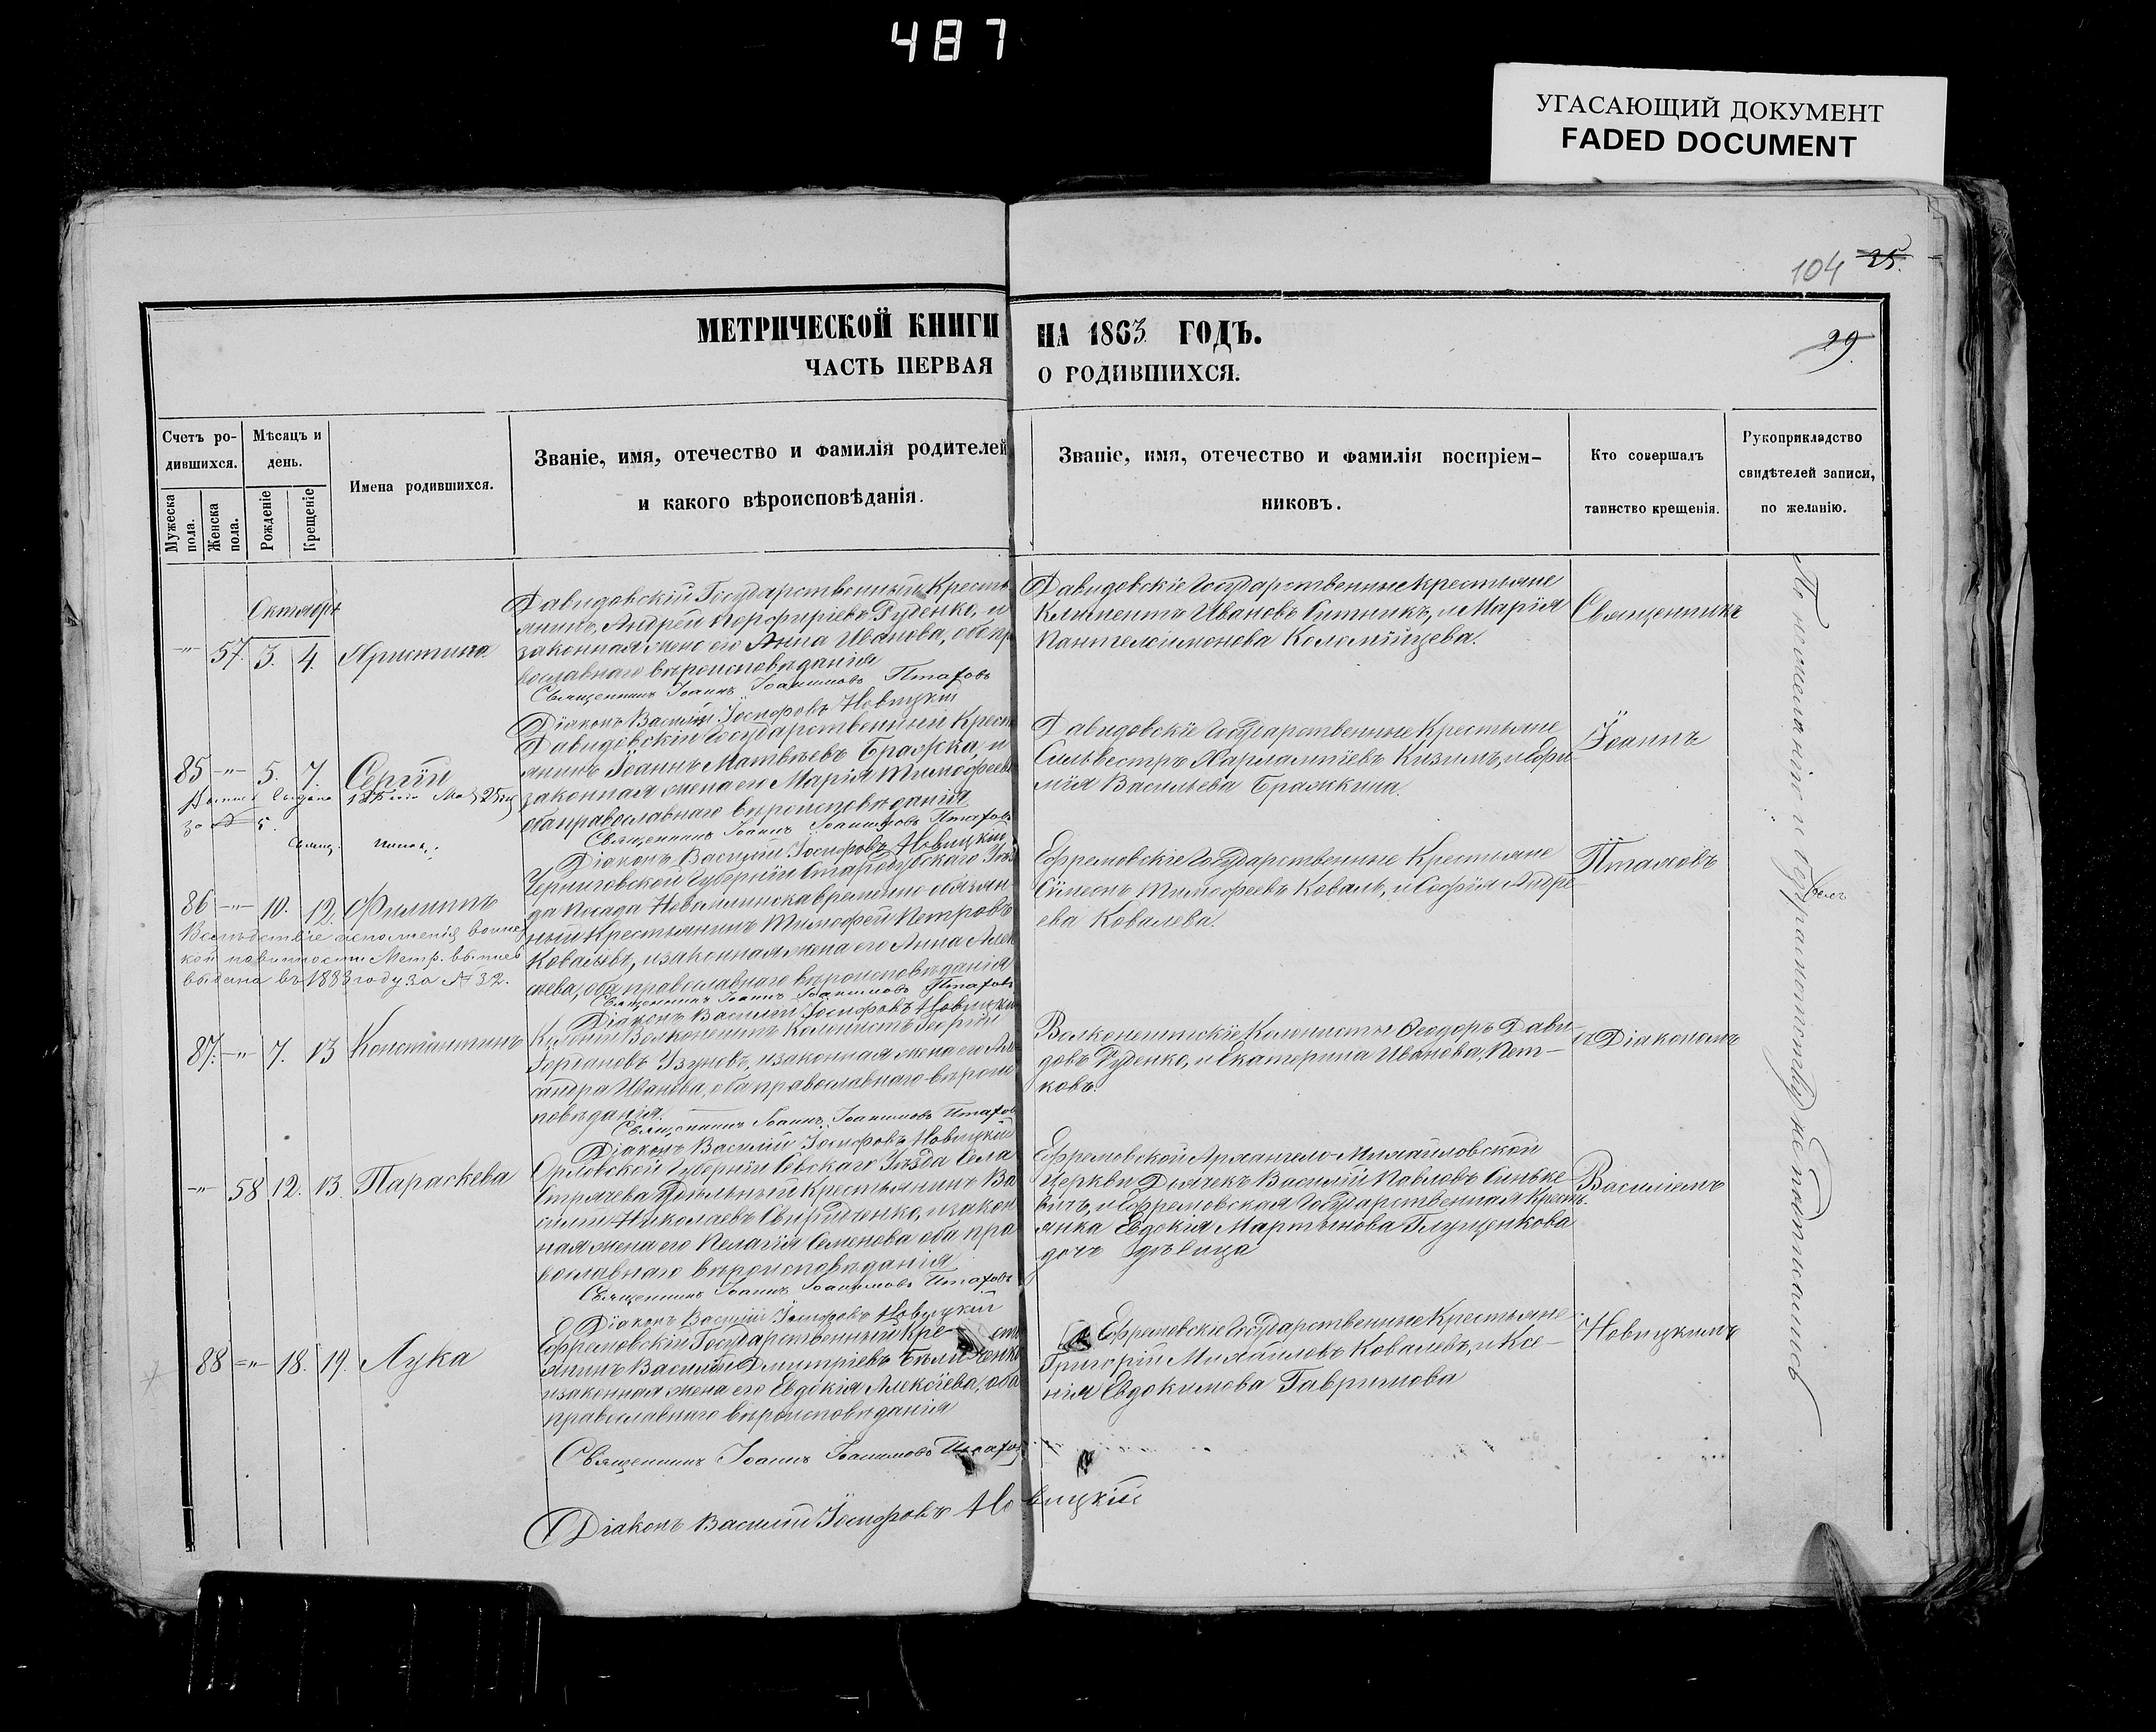 487
УГАСАЮЩИЙ ДОКУМЕНТ
FADED DOCUMENT
104 25.
29.
МЕТРИЧЕСКОЙ КНИГИ НА 1863 ГОДЪ.
ЧАСТЬ ПЕРВАЯ О РОДИВШИХСЯ.
Счетъ ро-
дившихся.
Мужеска
пола.
Женска
пола.
Мѣсяцъ и
день.
Рожденіе
Крещеніе
Имена родившихся.
Званіе, имя, отечество и фамилія родителей
и какого вѣроисповѣданія.
Званіе, имя, отечество и фамилія воспріем-
никовъ.
Кто совершалъ
таинство крещенія.
Рукоприкладство
свидѣтелей записи,
по желанію.
Октября
57. 3. 4. Христина
Давидовскій Государственный Кресть
янинъ, Андрей Порфиріевъ Руденко, и
законная жена его Анна Иванова, оба пра
вославнаго вѣроисповѣданія
Священникъ Іоаннъ Іоакимовъ Птаховъ
Діаконъ Василій Іосифовъ Новицкій
Давидовскіе Государственные крестьяне
Климентъ Ивановъ Ситникъ, и Марія
Пантелеимонова Коломійцева.
Священникъ
85 5. 7. Сергій
за № 5.
Давидовскій Государственный Кресть
янинъ Іоаннъ Матвѣевъ Бражка, и
законная жена его Марія Тимофеева
оба православнаго вѣроисповѣданія
Священникъ Іоаннъ Іоакимовъ Птаховъ
Діаконъ Василій Іосифовъ Новицкій
Давидовскіе Государственные Крестьяне
Сильвестръ Харлампіевъ Кизимъ, и Ефи
мія Васильева Бражкина.
Іоаннъ
86 10. 12. Филиппъ
Вслѣдствіе исполненія воинс
кой повинности Метр. выпись
выдана въ 1883 году за № 32.
Черниговской Губерніи Стародубского Уѣз
да Посада Новомлинска временно обязан
ный Крестьянинъ Тимофей Петровъ
Ковалевъ, и законная жена его Анна Алек
сѣева, оба православнаго вѣроисповѣданія
Священникъ Іоаннъ Іоакимовъ Птаховъ
Діаконъ Василій Іосифовъ Новицкій
Ефремовскіе Государственные Крестьяне
Сѵмеонъ Тимофеевъ Коваль, и Софія Андре
ева Ковалева.
Птаховъ
87. 7. 13 Константинъ
Колоніи Волконештъ Колонистъ Георгій
Іордановъ Узуновъ, и законная жена его Алек
сандра Иванова, оба православнаго вѣроис
повѣданія.
Священникъ Іоаннъ Іоакимовъ Птаховъ
Діаконъ Василій Іосифовъ Новицкій
Волконештскіе Колонисты Ѳеодоръ Дави
довъ Руденко, и Екатерина Иванова Пет-
ковъ.
съ Діакономъ
58 12. 13. Параскева
Орловской Губерніи Сѣвскаго Уѣзда Села
Стрячева Удѣльный Крестьянинъ Ва
силій Николаевъ Свириденко, и закон
ная жена его Пелагія Семенова оба пра
вославнаго вѣроисповѣданія
Священникъ Іоаннъ Іоакимовъ Птаховъ
Діаконъ Василій Іосифовъ Новицкій
Ефремовской Архангело-Михайловской
Церкви Дьячекъ Василій Павловъ Синьке
вичъ, и Ефремовская Государственная Кресть
янка Евдокія Мартынова Глущенкова
дочь дѣвица
Василіемъ
88 18. 19. Лука
Ефремовскій Государственный Кре- сть
янинъ Василій Дмитріевъ Бѣличенко
и законная жена его Евдокія Алексѣева, оба
православнаго вѣроисповѣданія
Священникъ Іоаннъ Іоакимовъ Птаховъ
Діаконъ Василій Іосифовъ Новицкій
Ефремовскіе Государственные Крестьяне
Григорій Михаиловъ Ковалевъ, и Ксе-
нія Евдокимова Гаврилова
Новицкимъ
По нежеланію и безграмотству не подписались